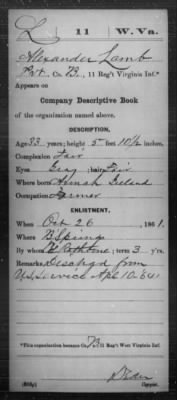 L 11 W. Va.
Alexander Lamb
Pvt, Co. B, 11 Reg't West Virginia Inf.*
Appears on
Company Descriptive Book
of the organization named above.
DESCRIPTION.
Age 33 years; height 5 feet 10½ inches.
Complexion Fair
Eyes Gray; hair Fair
Where born Ireland
Occupation Farmer
ENLISTMENT.
When Oct 26, 1861.
Where B. Spring
By whom Rathbone; term 3 y'rs.
Remarks: Discharged from
U.S. Service Apl 10-64
*This organization became Co. , 11 Reg't West Virginia Inf.
Copyist.